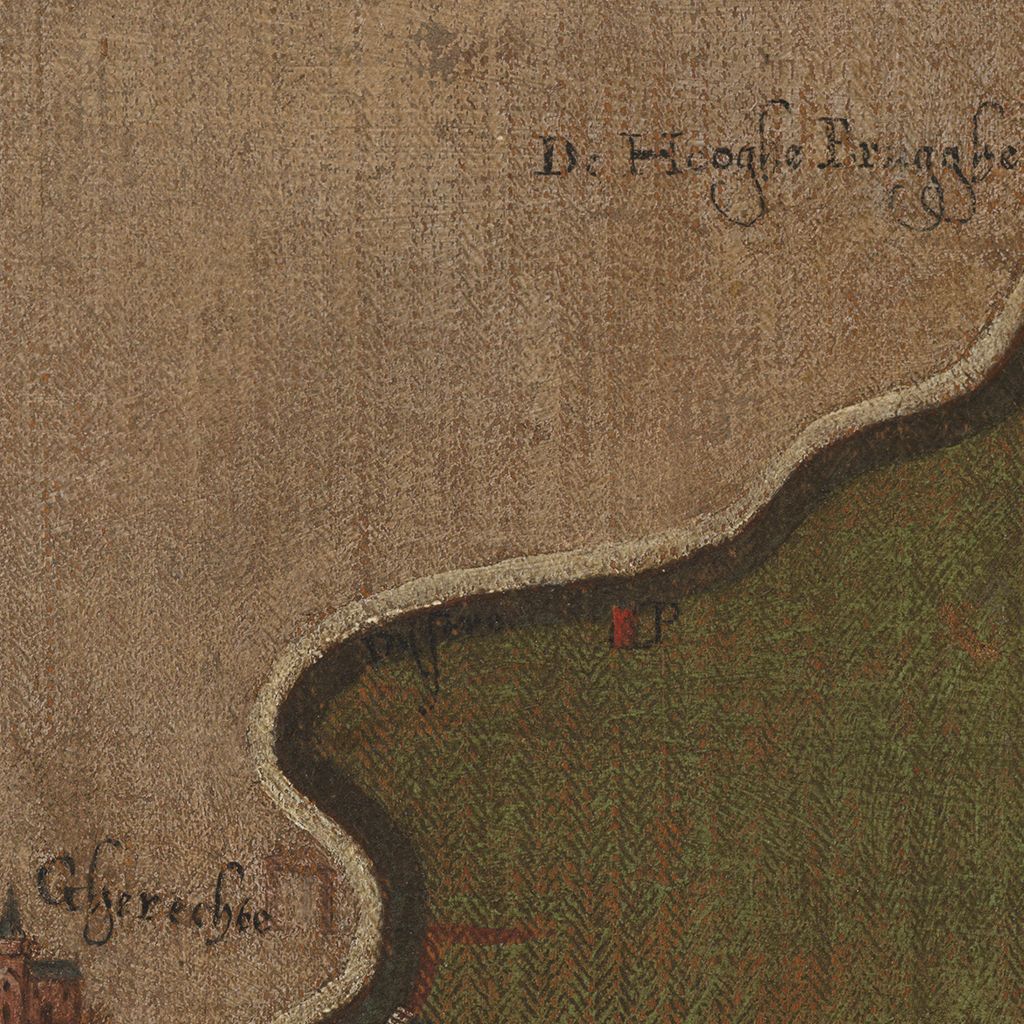 De Hooghe Brugghe
Gherechte